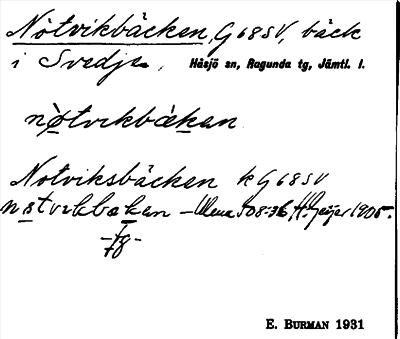 Nötvikbäcken, G 68 SV, bäck
i Svedje, Håsjö sn, Ragunda tg, Jämtl. l.
nò̱tvikbæ̀ḵan
Notviksbäcken k G 68 SV
no̱tvikbækan - 508:36 H. Geijer 1905.
E. BURMAN 1931